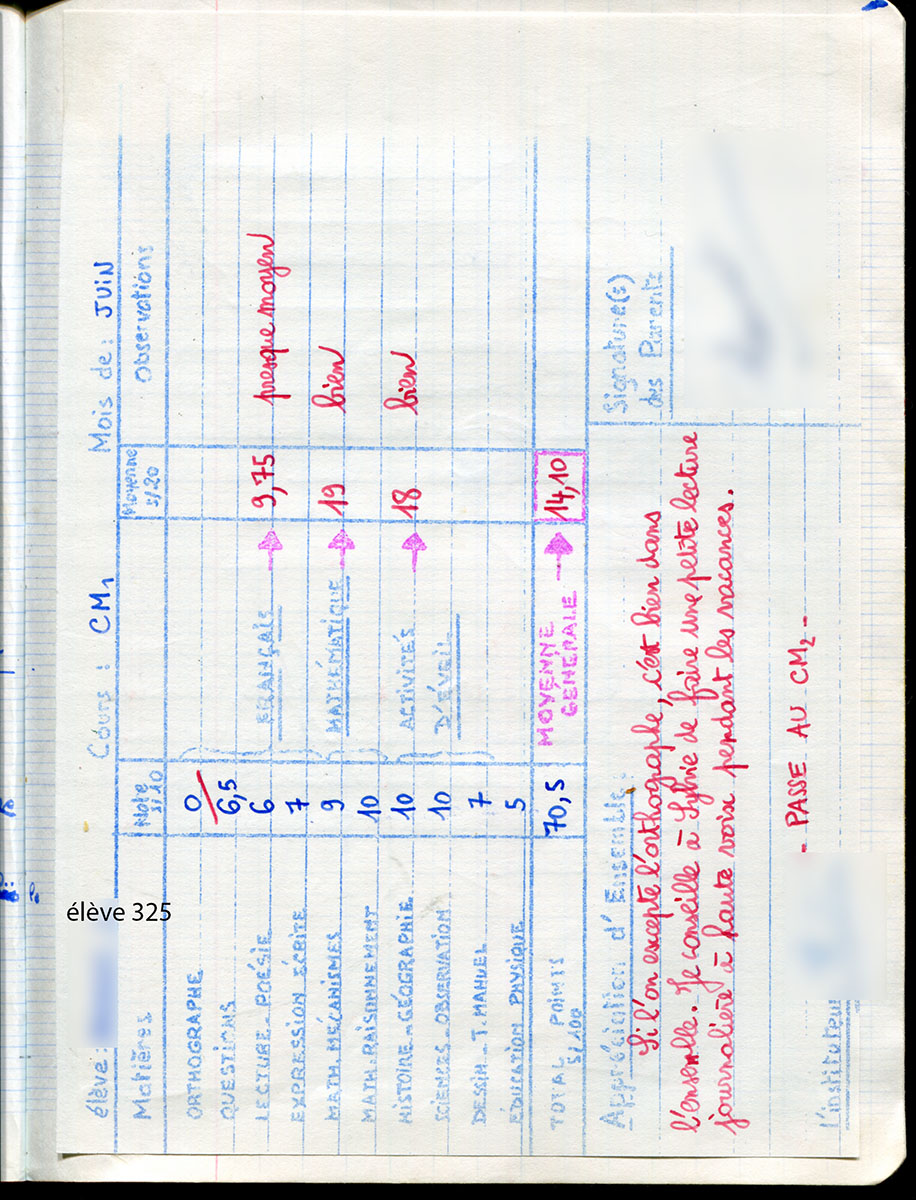 élève 325
élève : Cours : CM1 Mois de : JUIN
Matières Note s/10 Moyenne s/20 Observations
ORTHOGRAPHE 0
QUESTIONS 6,5
LECTURE - POÉSIE 6 FRANÇAIS → 9,75 presque moyen
EXPRESSION ÉCRITE 7
MATH. MÉCANISMES 9 MATHÉMATIQUE → 19 bien
MATH. RAISONNEMENT 10
HISTOIRE - GÉOGRAPHIE 10 ACTIVITÉS → 18 bien
SCIENCES - OBSERVATION 10 D'ÉVEIL
DESSIN - T. MANUEL 7
ÉDUCATION PHYSIQUE 5
TOTAL POINTS s/100 70,5 MOYENNE GENERALE → 14,10
Appréciation d'Ensemble :
Si l'on excepte l'orthographe, c'est bien dans
l'ensemble. Je conseille à Sylvie de faire une petite lecture
journalière à haute voix pendant les vacances.
Signature(s)
des Parents
- PASSE AU CM2 -
L'instituteur